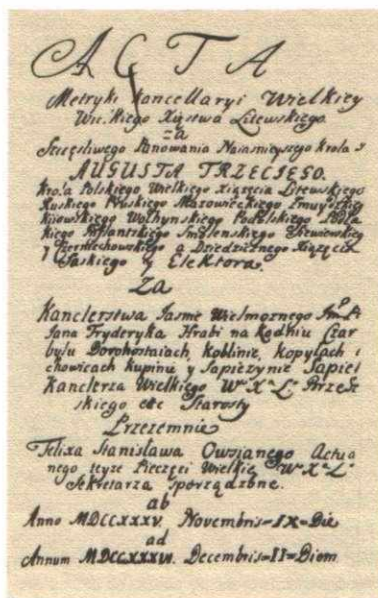 ACTA
Metryki Kancellaryi Wielkiey
Wiel.kiego Xięstwa Litewskiego
za
Szczęśliwego Panowania Naiaśnieyszego Krola J
AUGUSTA TRZECIEGO.
Kro.a Polskiego Wielkiego Xiązęcia Litewskiego
Ruskiego Pruskiego Mazowieckiego Zmuydzkieg
Kijowskiego Wołhynskiego Podolskiego Podla
kiego Inflantskiego Smolenskiego Siewieskieg
y Czerniechowskiego a Dziedzicznego Xiązęcia
Saskiego y Elektora.
Za
Kanclerstwa Jasnie Wielmoznego
Jana Fryderyka Hrabi na Kodniu Czar
bylu Dorohostaiach, Koblinie, Kopylach i
chowicach Kupinie y Sapiezynie Sapiei
Kanclerza Wielkiego W° X^a L° Brzes
skiego etc Starosty
Przezemnie
Felixa Stanisława Owsianego Actua
nego teyze Pieczęci Wielkiey W° X^a L°
Sekretarza sporządzone.
ab
Anno MDCCXXXV. Novembris=IX=Die
ad
Annum MDCCXXXVI. Decembris=II=Diem